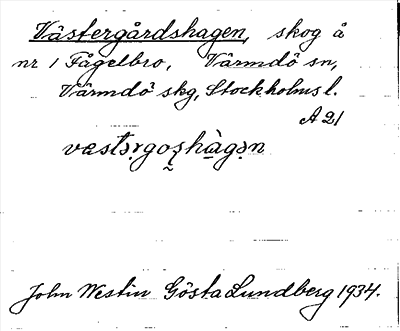 Västergårdshagen, skog å
nr 1 Fågelbro, Värmdö sn,
Värmdö skg, Stockholms l.
A 21
væstə̣rgoʂhàgə̣n
John Westin Gösta Lundberg 1934.